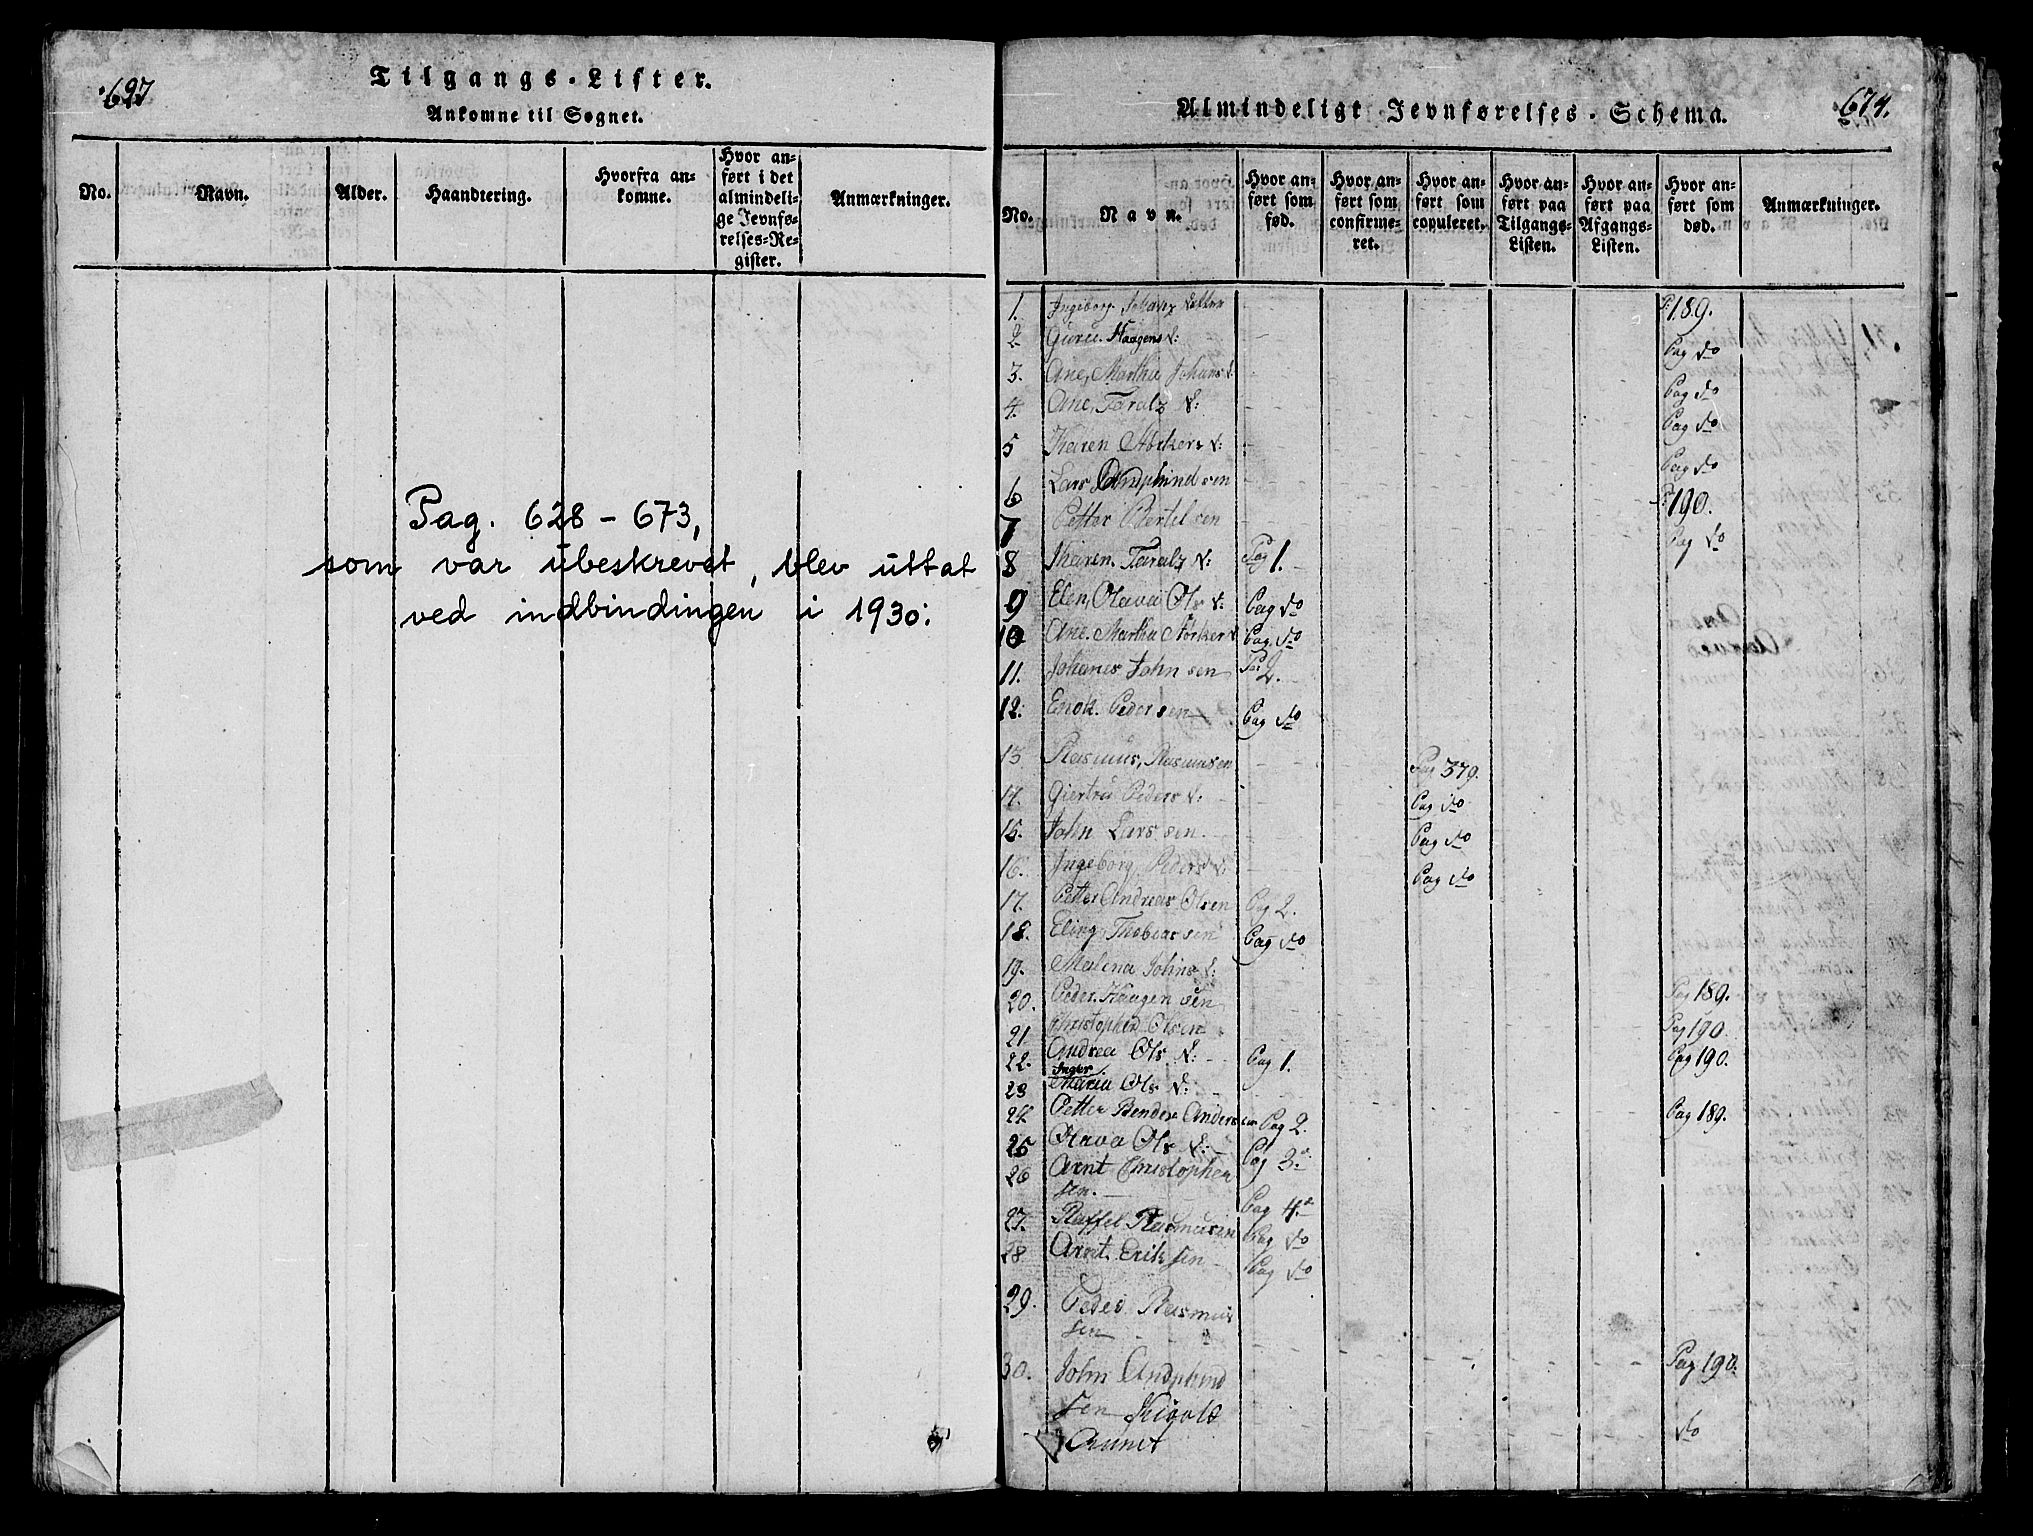 627
Tilgangs-Lister.
Ankomne til Sognet.
No.
Navn.
Alder.
Haandtering.
Hvorfra an-
komne.
Hvor an-
ført i det
almindeli-
ge Jevnfø-
relses-Re-
gister.
Anmærkninger.
Pag. 628 - 673,
som var ubeskrevet, blev uttat
ved indbindingen i 1930.
Almindeligt Jevnførelses-Schema.
674.
No.
Navn.
Hvor an-
ført som
fød.
Hvor an-
ført som
confirme-
ret.
Hvor an-
ført som
copuleret.
Hvor an-
ført paa
Tilgangs-
Listen.
Hvor an-
ført paa
Afgangs-
Listen.
Hvor an-
ført som
død.
Anmærkninger.
1. Ingeborg P. 189.
2 Guru Haagens d: Pag do
3. Ane, Martha Johans d: Pag do
4. Ane, Taralz d: Pag do
5 Karen Storkers d: Pag do
6 Lars sen P. 190.
7 Petter Bertel sen Pag do
8 Karen Taralz d: Pag 1.
9 Elen, Olava Ols d: Pag do
10 Ane Martha Storker d Pag do
11. Johanes John sen Pag 2.
12. Enok Peder sen Pag do
13 Rasmus, Rasmusen Pag 379.
14. Giertru Peders d: Pag do
15. John Lars sen. Pag do
16. Ingeborg Peders d: Pag do
17. Petter Andreas Olsen Pag 2.
18. Eling Thobias sen Pag do
19. Malena Johns d:
20. Peder Haagen sen Pag 189.
21 Christopher Olsen Pag 190.
22. Andrea Ols d: Pag 1. Pag 190.
Inger
23 Maria Ols d:
24 Petter Bendix Anders sen Pag 2. Pag 189.
25 Olava Ols d: Pag 3.
26 Arnt Christopher
sen. Pag 4.
27. Raffel Rasmusen Pag do
28 Arnt Erik sen Pag do
29. Peder Rasmus
sen
30. John
sen Pag 190.
do